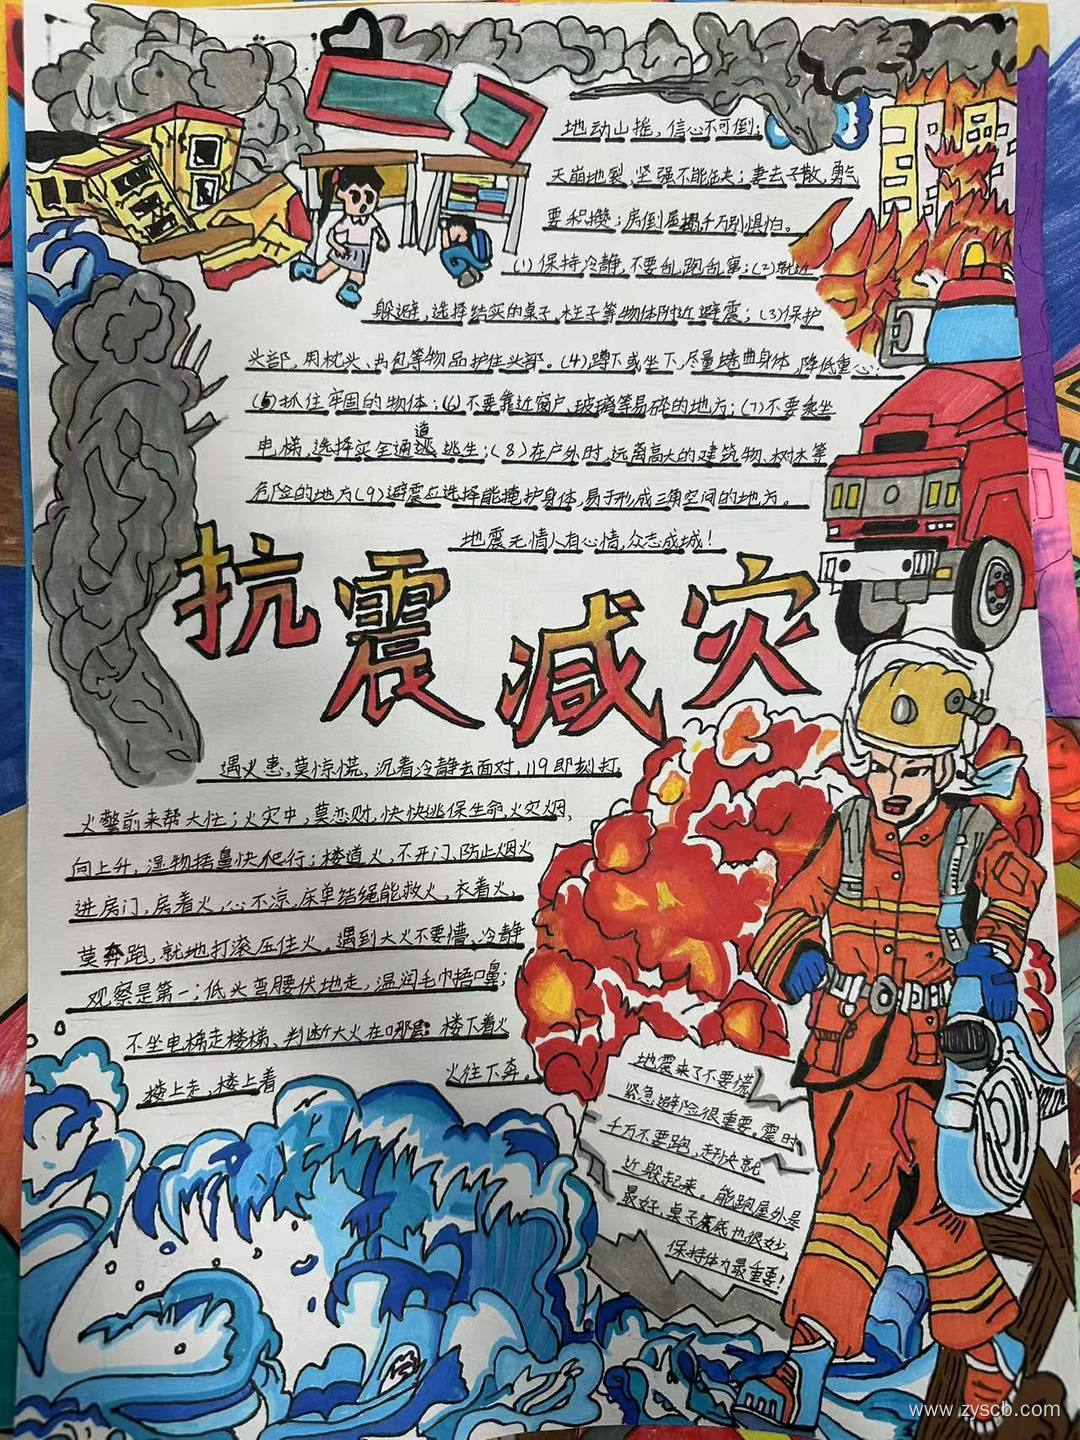 地动山摇,信心不可倒;
天崩地裂,坚强不能缺;妻去子散,勇气
要积攒;房倒屋塌,千万别惧怕。
(1)保持冷静,不要乱跑乱窜;(2)就近
躲避,选择结实的桌子、柱子等物体附近避震;(3)保护
头部,用枕头、书包等物品护住头部。(4)蹲下或坐下,尽量蜷曲身体,降低重心;
(5)抓住牢固的物体;(6)不要靠近窗户、玻璃等易碎的地方;(7)不要乘坐
电梯,选择安全通道逃生;(8)在户外时,远离高大的建筑物、树木等
危险的地方(9)避震应选择能掩护身体,易于形成三角空间的地方。
地震无情人有心情,众志成城!
抗震减灾
遇火患,莫惊慌,沉着冷静去面对,119即刻打,
火警前来帮大忙;火灾中,莫恋财,快快逃保生命,火灾烟,
向上升,湿物捂鼻快爬行;楼道火,不开门,防止烟火
进房门,房着火,心不凉,床单结绳能救火,衣着火,
莫奔跑,就地打滚压住火。遇到大火不要懵、冷静
观察是第一;低头弯腰伏地走,温润毛巾捂口鼻;
不坐电梯走楼梯、判断大火在哪层 楼下着火
楼上走,楼上着 火往下奔。
地震来了不要慌
紧急避险很重要。震时
千万不要跑,赶快就
近躲起来。能跑屋外是
最好,桌子底也很妙,
保持体力最重要!
www.zyscb.com